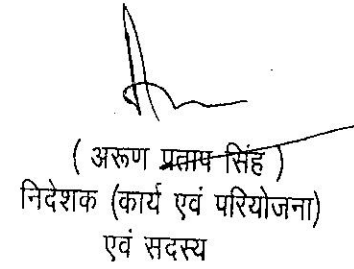 ( अरूण प्रताप सिंह )
निदेशक (कार्य एवं परियोजना)
एवं सदस्य